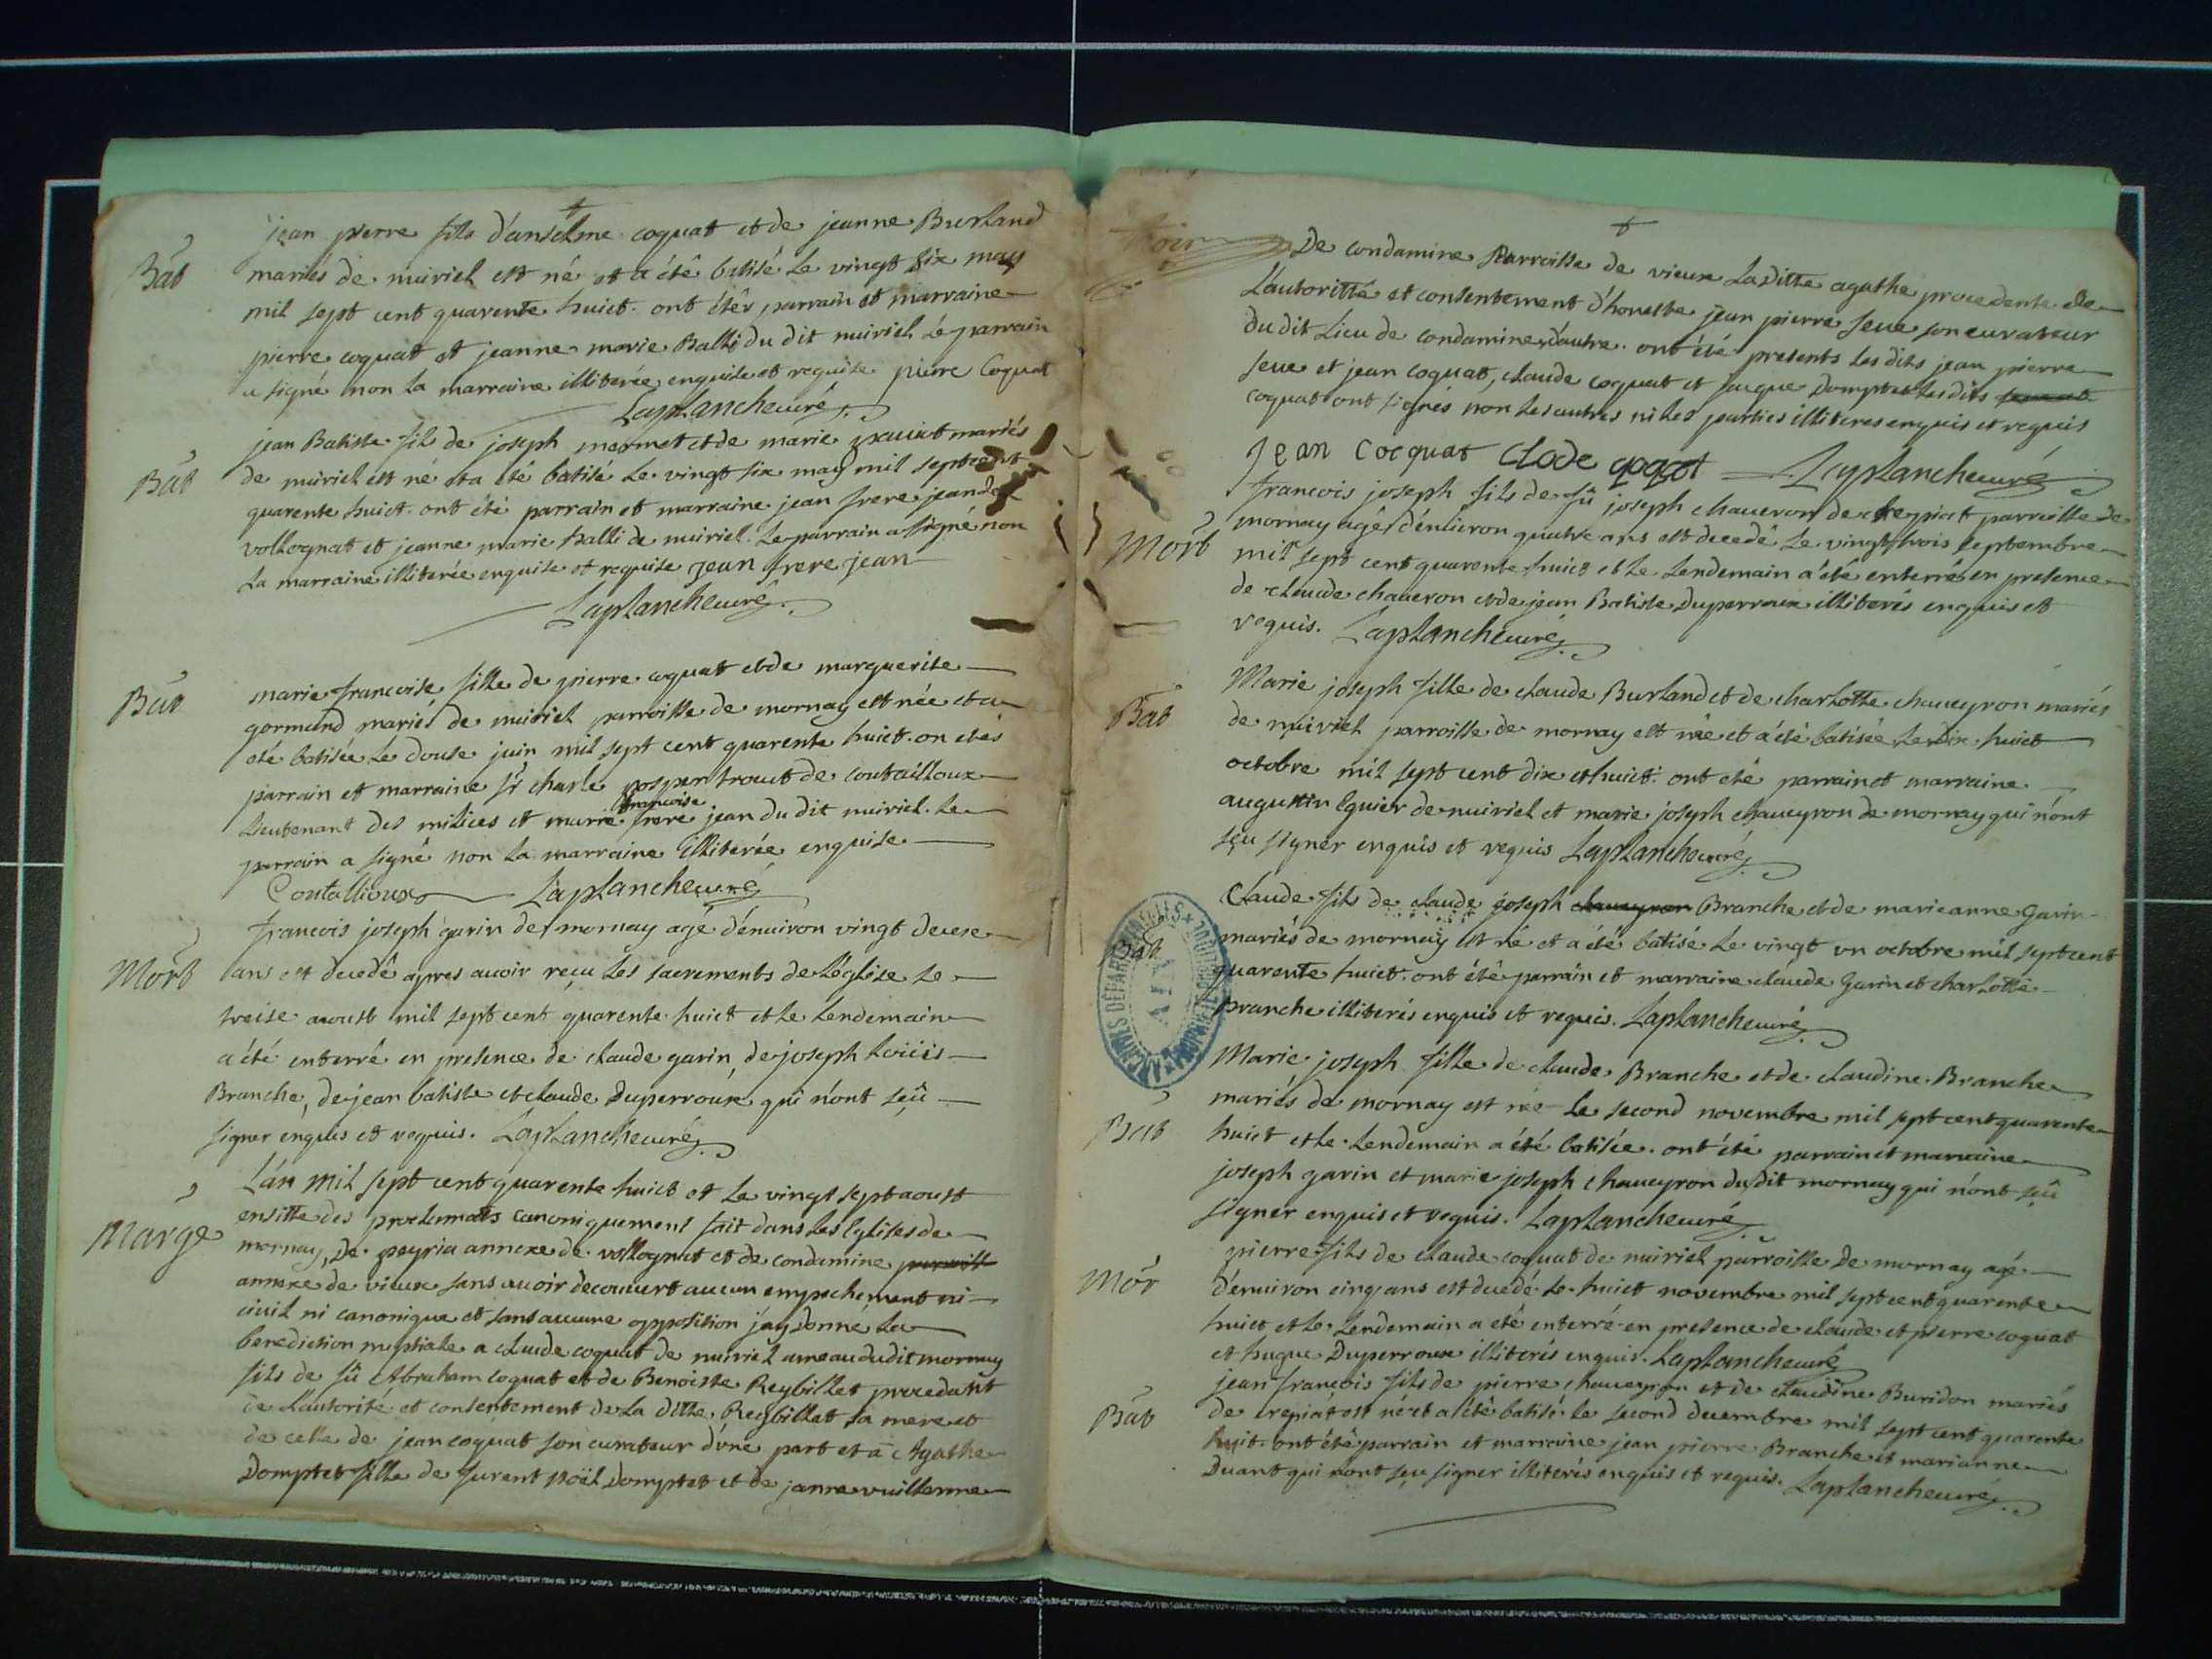 Bat
jean pierre fils d'anselme coquat et de jeanne Burland
mariés de nuiriel est né et a été batisé le vingt six may
mil sept cent quarente huict. ont étér parrain et marraine
pierre coquat et jeanne marie Balli du dit nuiriel. Le parrain
a signé non la marraine illiterée enquise et requise. piere Coquat
Laplanche curé.
Bat
jean Batiste fils de joseph mermet et de marie mariés
de nuiriel est né et a été batisé le vingt six may mil sept cent
quarente huict. ont été parrain et marraine jean frere jean de
vollognat et jeanne marie Balli de nuiriel. Le parrain a signé non
La marraine illiterée enquise et requise jean frere jean
Laplanche curé.
Bat
marie francoise fille de pierre coquat et de marguerite
gormand mariés de nuiriel parroisse de mornay est née et a
été batisée le douse juin mil sept cent quarente huict. on etés
parrain et marraine sr charle prosper trocut de coutailloux
Lieutenant des milices et marie francoise frere jean du dit nuiriel. le
parrain a signé non la marraine illiterée enquise
Contallioux Laplanche curé
Mort
francois joseph garin de mornay agé d'enuiron vingt deux
ans est decedé apres auoir reçu les sacrements de L'églize le
treise aoust mil sept cent quarente huict et le lendemain
a été enterré en presence de claude garin, de joseph Loüis
Branche, de jean batiste et claude Duperroux qui n'ont seû
signer enquis et requis. Laplanche curé.
Marge
L'an mil sept cent quarente huict et le vingt sept aoust
ensitte des proclamats canoniquement fait dans les Eglises de
mornay, De peyria annexe de vollognat et de condamine parroisse
annexe de vieux sans auoir decouvert aucun empechement ni
ciuil ni canonique et sans aucune opposition j'ay donné la
benediction nuptiale a claude coquat de nuiriel ameau du dit mornay
fils de fû Abraham coquat et de Benoiste Reybillet procedant
de L'autorité et consentement de La ditte Reybillet sa mere et
de celle de jean coquat son curateur d'une part et a Agathe
Domptet fille de furent Noël Domptet et de janne vuillerme
De condamine Parroisse de vieux La ditte agathe procedente de
L'autoritté et consentement d'honeste jean pierre Seue son curateur
du dit Lieu de condamine d'autre. ont été presents les dits jean pierre
Seue et jean coquat, claude coquat et huque Domptet les dits
coquat ont signés non les autres ni les parties illiteres enquis et requis
Jean Cocquat Clode qoqot Laplanche curé
Mort
francois joseph fils de fû joseph chaueron de crepiat parroisse de
mornay agé d'enuiron quatre ans est decedé le vingt trois septembre
mil sept cent quarente huict et le Lendemain a été enterré en presence
de claude chaueron et de jean Batiste Duperroux illiterés enquis et
requis. Laplanche curé.
Bat
Marie joseph fille de claude Burland et de charlotte chaueyron mariés
de nuiriel parroisse de mornay est née et a été batisée le dix huict
octobre mil sept cent dix et huict. ont été parrain et marraine
augustin Eguier de nuiriel et marie joseph chaueyron de mornay qui n'ont
sçu signer enquis et requis Laplanche curé.
Bat
Claude fils de claude joseph chaueyron Branche et de marieanne Garin
mariés de mornay est né et a été batisé le vingt un octobre mil sept cent
quarente huict. ont été parrain et marraine claude Garin et charlotte
Branche illiterés enquis et requis. Laplanche curé
ARCHIVES DÉPARTEMENTALES
AIN
Bat
Marie joseph fille de claude Branche et de claudine Branche
mariés de mornay est née le second novembre mil sept cent quarente
huict et le Lendemain a été batisée. ont été parrain et marraine
joseph garin et marie joseph chaueyron du dit mornay qui n'ont seû
signer enquis et requis. Laplanche curé
Mor
pierre fils de claude coquat de nuiriel parroisse de mornay agé
d'enuiron cinq ans est decedé le huict novembre mil sept cent quarente
huict et le Lendemain a été enterré en presence de claude et pierre coquat
et huque Duperroux illiterés enquis. Laplanche curé
Bat
jean francois fils de pierre chaueyron et de claudine Buridon mariés
de crepiat est né et a été batisé le second decembre mil sept cent quarente
huit. ont été parrain et marraine jean pierre Branche et marianne
Duant qui n'ont sçu signer illiterés enquis et requis. Laplanche curé.